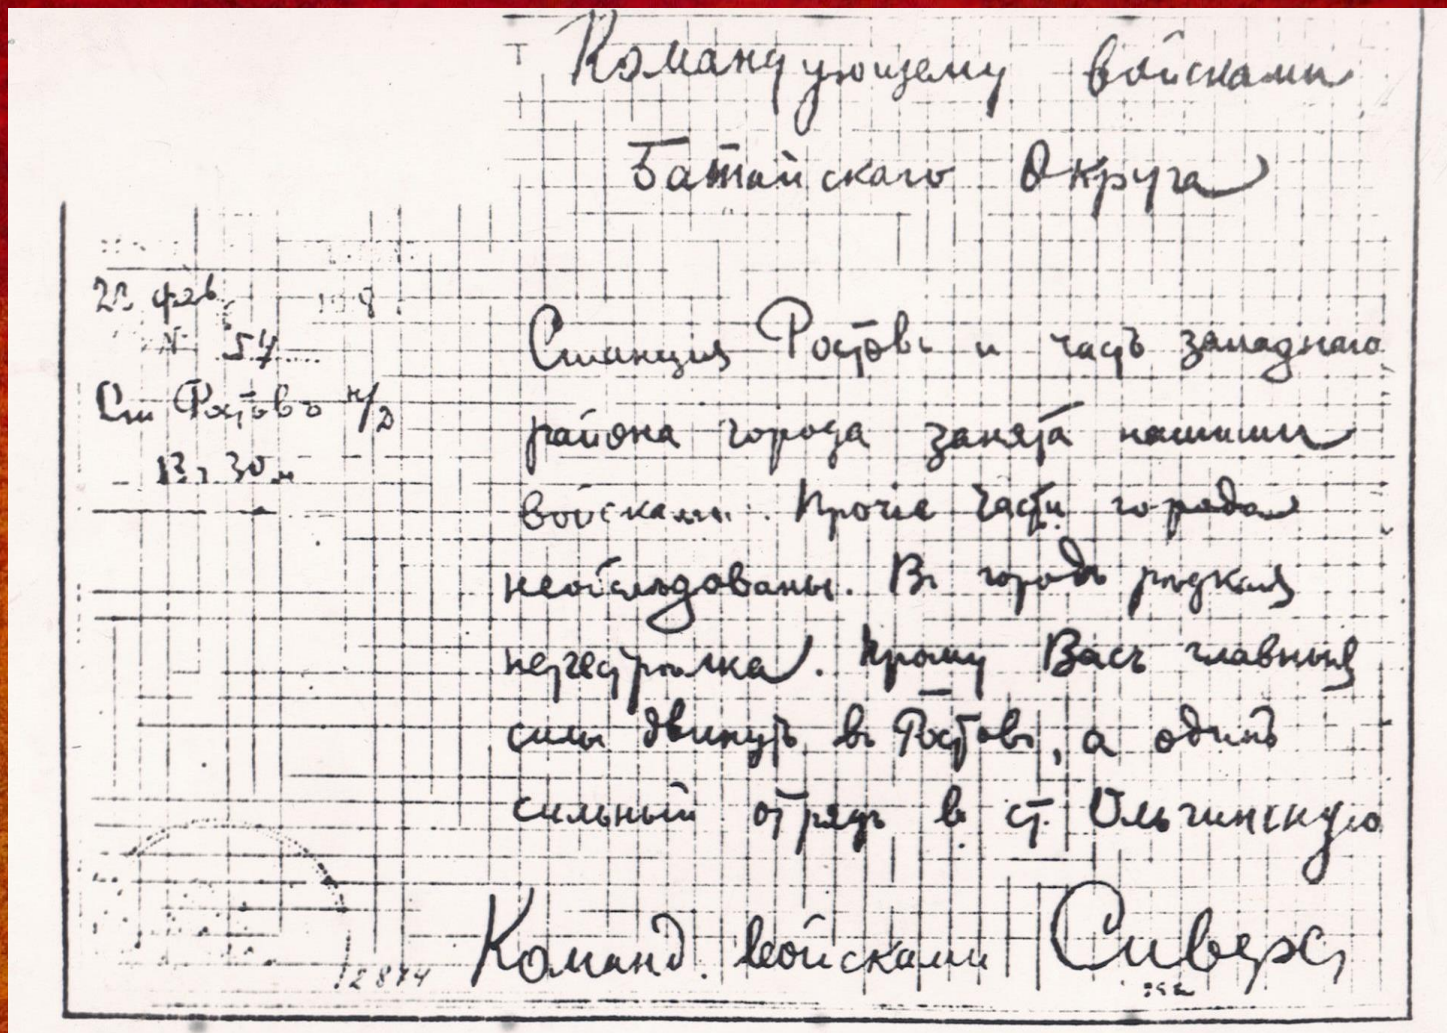 Командующему войсками
Батайскаго Округа
23 фев. 1918
№ 54
Ст Ростовъ н/Д
13 ч 30 м
Станция Ростовъ и часть западнаго
района города занята нашими
войсками. Прочие части города
необследованы. Въ городѣ рѣдкая
перестрѣлка. Прошу Васъ главныя
силы двинуть въ Ростовъ, а одинъ
сильный отрядъ в ст. Ольгинскую
Команд. войсками Сиверс
12874